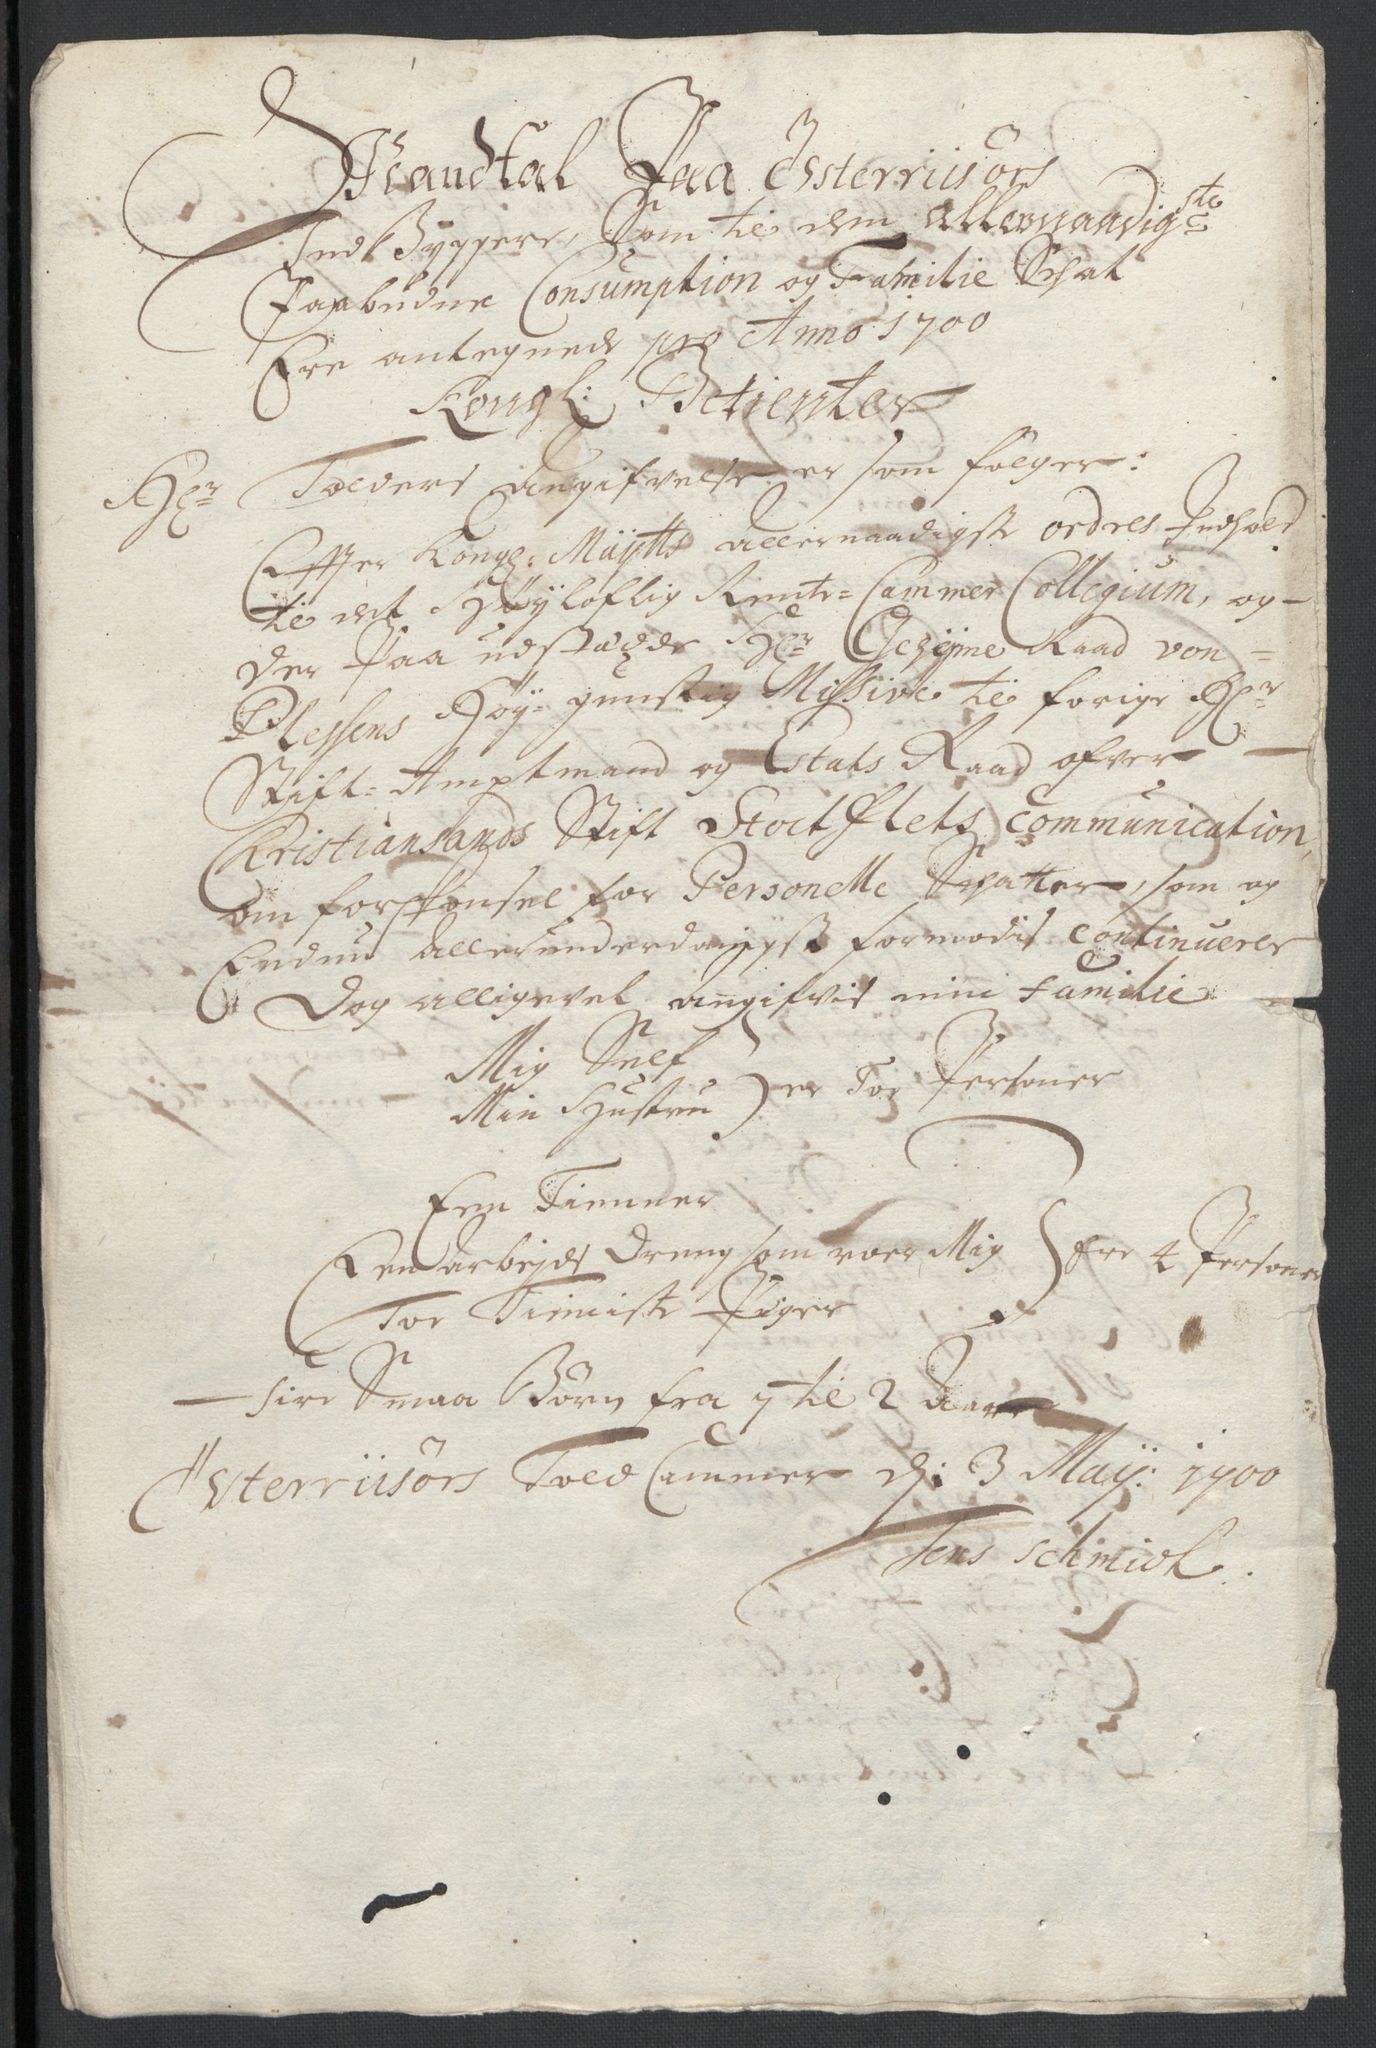 Mandtal Paa Østerriisörs
Indbÿggere, Som til dem allernaadigste
Paabudne Consumption og Familie Schat
Ere antegnede pro Anno 1700
Kongl: Betienter
Hr Tolders angifvelse er som følger:
Effter Kongl: Maÿtts allernaadigste ordres Indhold
til det Høÿloflig Rente-Cammer Collegium, og
der Paa udstædde Hr Geheime Raad von
Plessens Høÿ-gunstig Missive til forige Hr
Stift-Amptmand og Estats Raad ofver
Christiansands Stift Stockflets communication,
om forskonsel for Personelle Schatter, som og
Endnu allerunderdanigst formodis continuerer
Dog alligevel angifvis min Familie
Mig Self
Min Hustru } er Toe Personer
Een Tienner
Een arbejds Dreng som roer Mig } Ere 4 Personer
Toe Tieniste Piger
fire Smaa Börn fra 7 til 2 Aar
Østerriisörs Told Cammer d: 3 Maÿ: 1700
Jens Schmidt